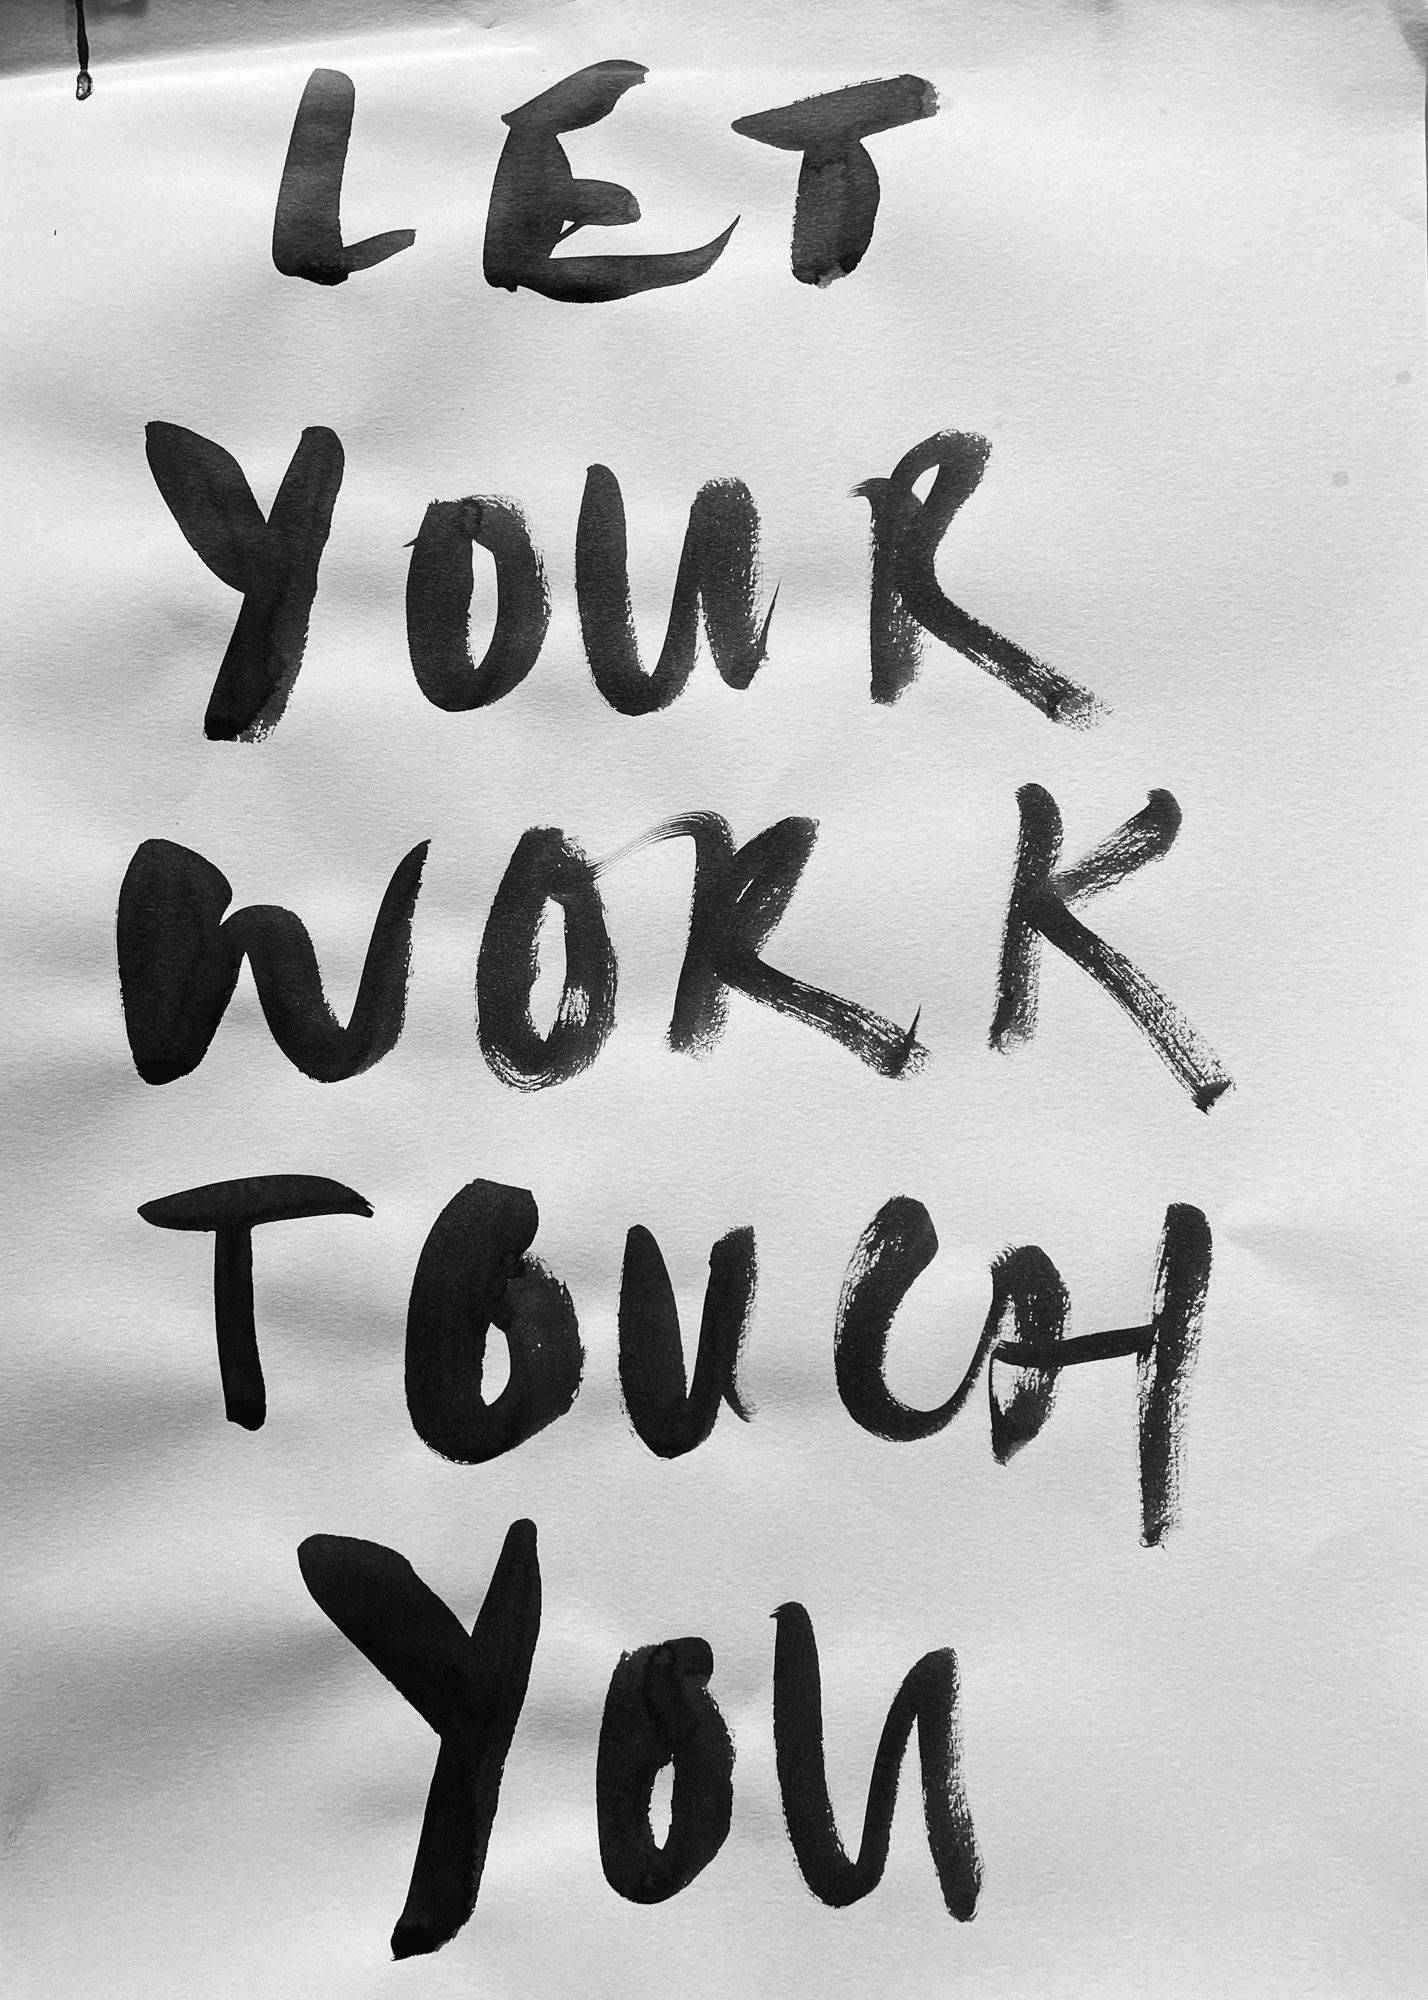 LET
YOUR
WORK
TOUCH
YOU